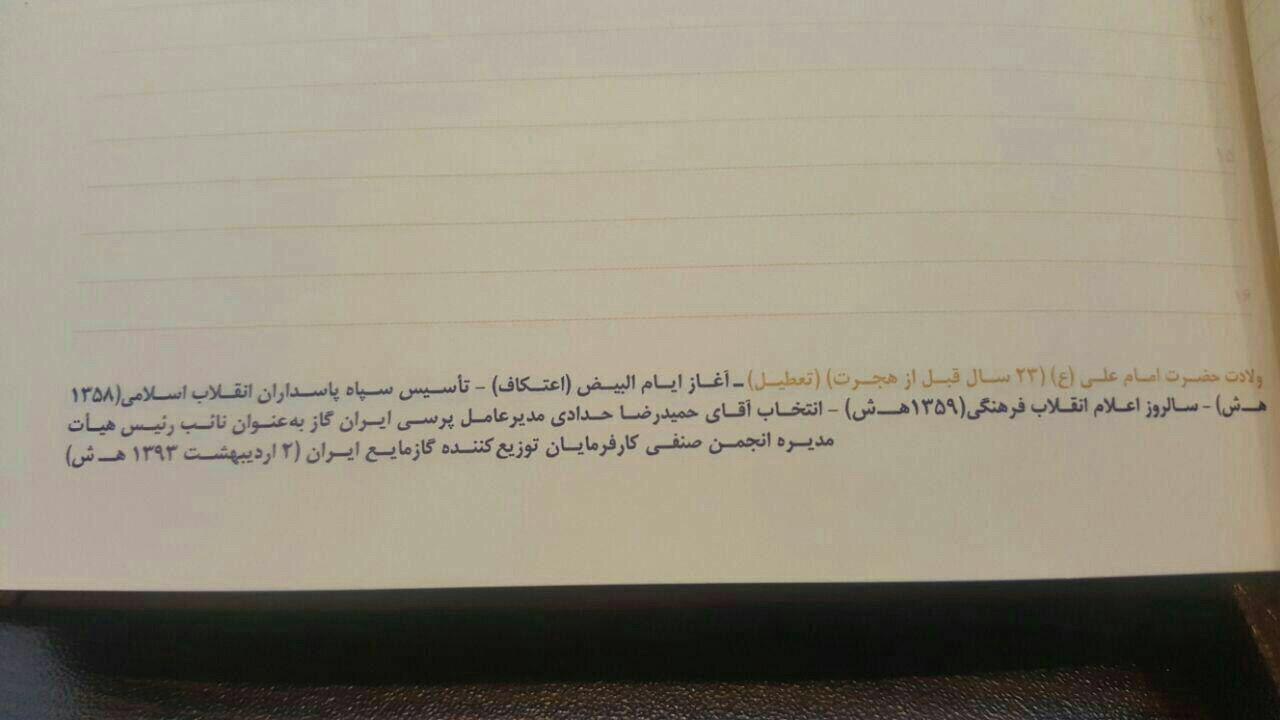 ۱۵
۱۶
ولادت حضرت امام علی (ع) (۲۳ سال قبل از هجرت) (تعطیل) ـ آغاز ایام البیض (اعتکاف) - تأسیس سپاه پاسداران انقلاب اسلامی(۱۳۵۸
هـ ش) - سالروز اعلام انقلاب فرهنگی(۱۳۵۹هـ ش) - انتخاب آقای حمیدرضا حدادی مدیرعامل پرسی ایران گاز به‌عنوان نائب رئیس هیأت
مدیره انجمن صنفی کارفرمایان توزیع‌کننده گازمایع ایران (۲ اردیبهشت ۱۳۹۳ هـ ش)